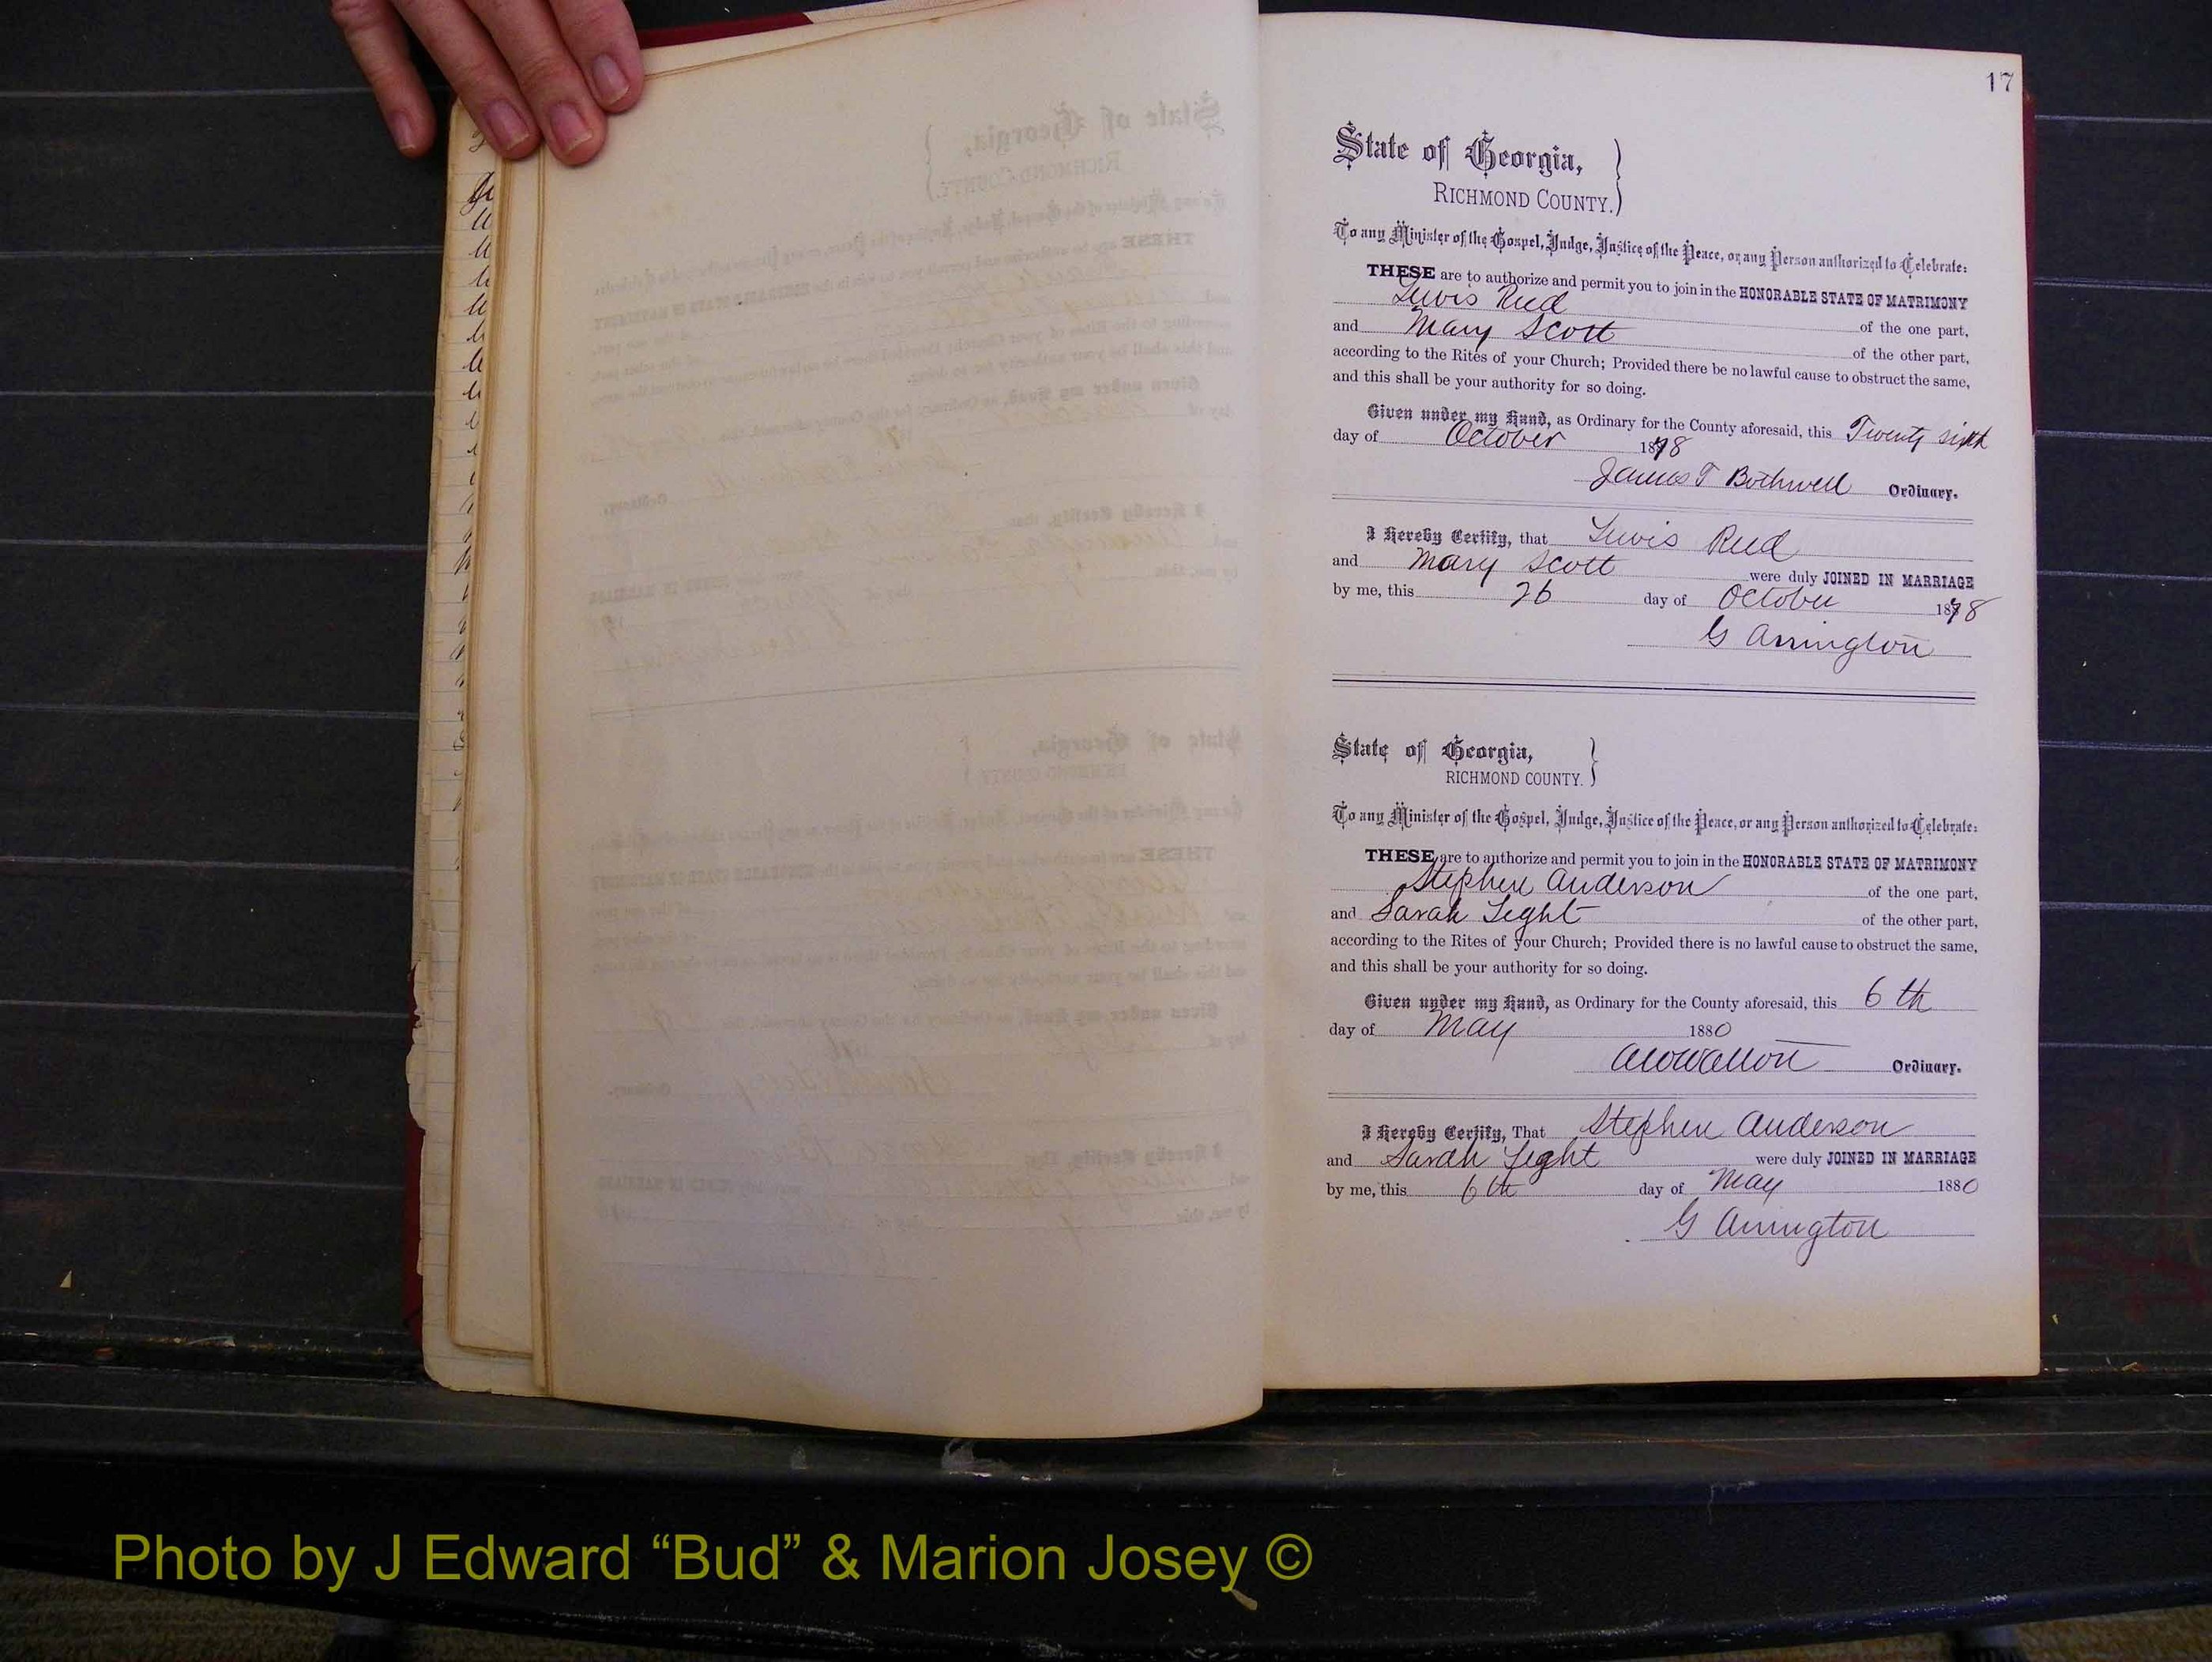 17
State of Georgia,
RICHMOND COUNTY.
To any Minister of the Gospel, Judge, Justice of the Peace, or any Person authorized to Celebrate:
THESE are to authorize and permit you to join in the HONORABLE STATE OF MATRIMONY
Lewis Reed of the one part,
and Mary Scott of the other part,
according to the Rites of your Church; Provided there be no lawful cause to obstruct the same,
and this shall be your authority for so doing.
Given under my Hand, as Ordinary for the County aforesaid, this Twenty sixth
day of October 1878
James T Bothwell Ordinary.
I Hereby Certify, that Lewis Reed
and Mary Scott were duly JOINED IN MARRIAGE
by me, this 26 day of October 1878
G Arrington
State of Georgia,
RICHMOND COUNTY.
To any Minister of the Gospel, Judge, Justice of the Peace, or any Person authorized to Celebrate:
THESE are to authorize and permit you to join in the HONORABLE STATE OF MATRIMONY
Stephen Anderson of the one part,
and Sarah Leght of the other part,
according to the Rites of your Church; Provided there is no lawful cause to obstruct the same,
and this shall be your authority for so doing.
Given under my Hand, as Ordinary for the County aforesaid, this 6th
day of May 1880
Ordinary.
I Hereby Certify, That Stephen Anderson
and Sarah Leght were duly JOINED IN MARRIAGE
by me, this 6th day of May 1880
G Arrington
Photo by J Edward “Bud” & Marion Josey ©